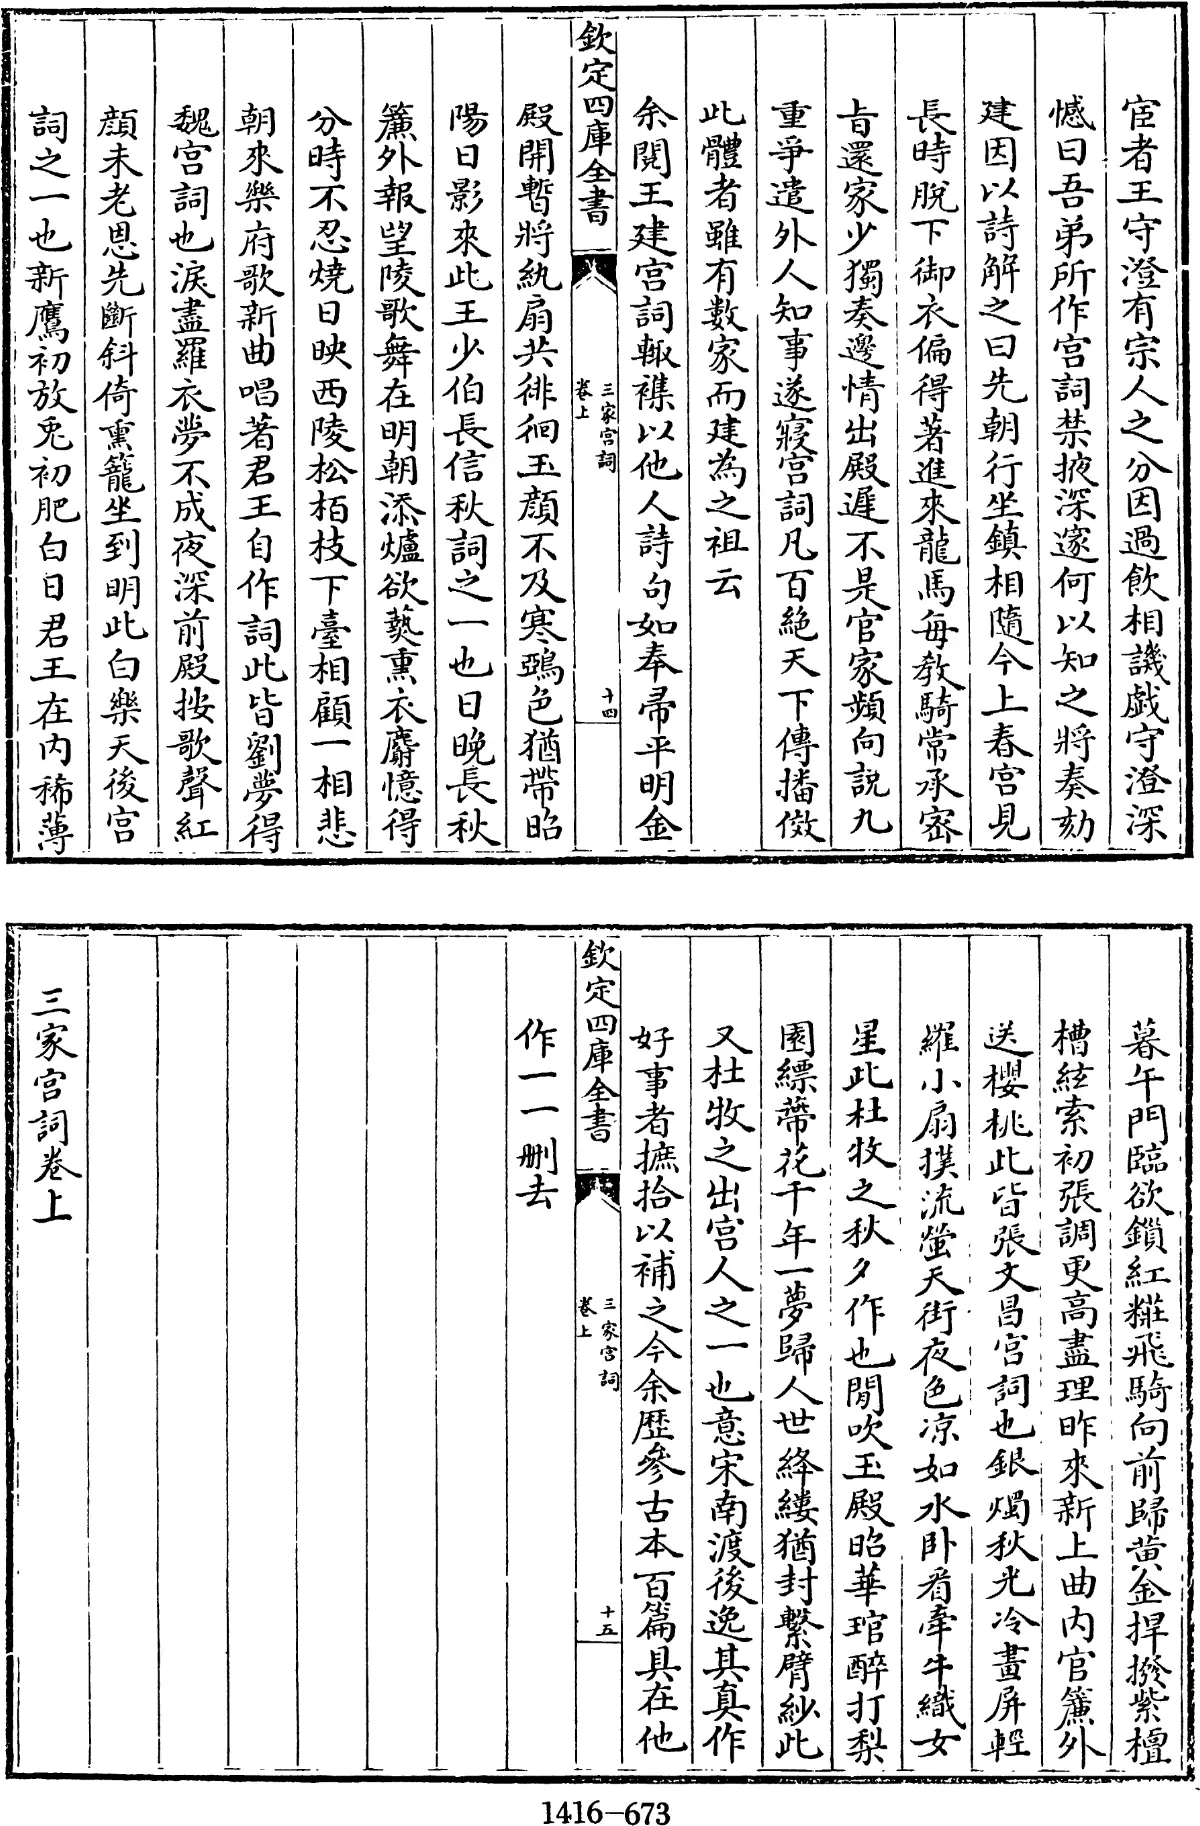 宦者王守澄有宗人之分因過飲相譏戯守澄深
憾曰吾弟所作宫詞禁掖深邃何以知之將奏劾
建因以詩解之曰先朝行坐鎮相隨今上春宫見
長時脱下御衣偏得著進來龍馬每教騎常承宻
㫖還家少獨奏邊情出殿遲不是官家頻向説九
重爭遣外人知事遂寢宫詞凡百絶天下傳播倣
此體者雖有數家而建為之祖云
余閱王建宫詞輙襍以他人詩句如奉帚平明金
欽定四庫全書
三家宫詞
卷上
十四
殿開暫將紈扇共徘徊玉顔不及寒鵶色猶帶昭
陽日影來此王少伯長信秋詞之一也日晚長秋
簾外報望陵歌舞在明朝添爐欲爇熏衣麝憶得
分時不忍燒日映西陵松栢枝下臺相顧一相悲
朝來樂府歌新曲唱著君王自作詞此皆劉夢得
魏宫詞也淚盡羅衣夢不成夜深前殿按歌聲紅
顔未老恩先斷斜倚熏籠坐到明此白樂天後宫
詞之一也新鷹初放兎初肥白日君王在内稀薄
暮午門臨欲鎖紅粧飛騎向前歸黄金捍撥紫檀
槽絃索初張調更高盡理昨來新上曲内官簾外
送櫻桃此皆張文昌宫詞也銀燭秋光冷畫屏輕
羅小扇撲流螢天街夜色凉如水卧看牽牛織女
星此杜牧之秋夕作也閒吹玉殿昭華琯醉打梨
園縹蔕花千年一夢歸人世絳縷猶封繫臂紗此
又杜牧之出宫人之一也意宋南渡後逸其真作
好事者摭拾以補之今余歴參古本百篇具在他
欽定四庫全書
三家宫詞
卷上
十五
作一一刪去
三家宫詞卷上
1416-673